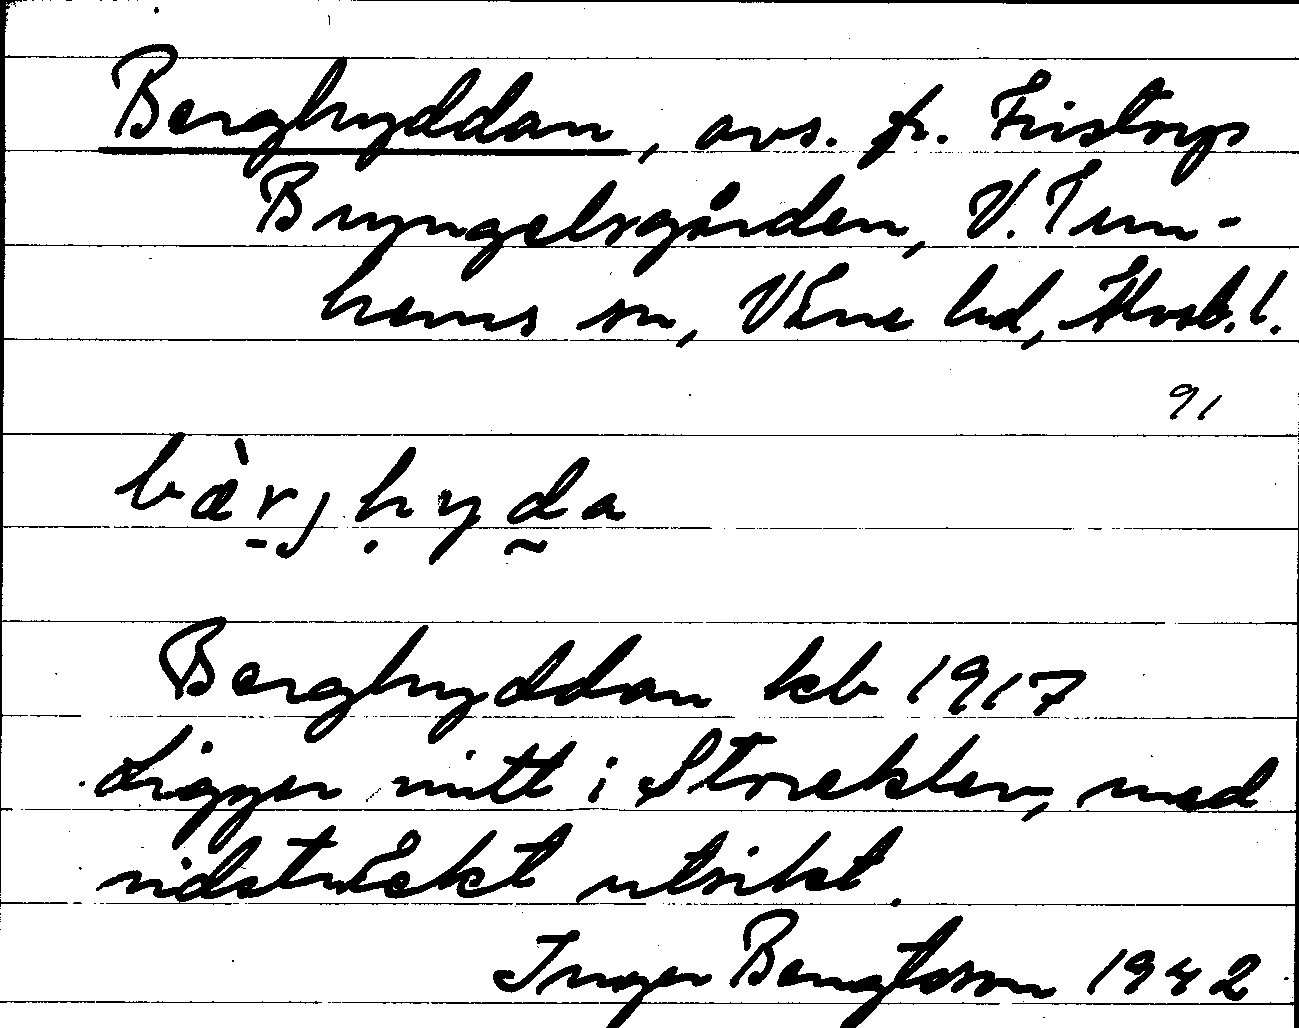 Berghyddan, avs. fr. Fristorps
Bryngelsgården, V. Tun-
hems sn, Väne hd, Älvsb. l.
91
bæ̀rj hyda
Berghyddan kb 1917
Ligger mitt i Storeklev, med
vidsträckt utsikt.
Inger Bengtsson 1942